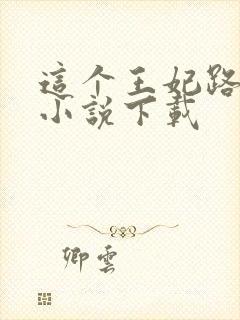 這个王妃路
小說下載
卿雲